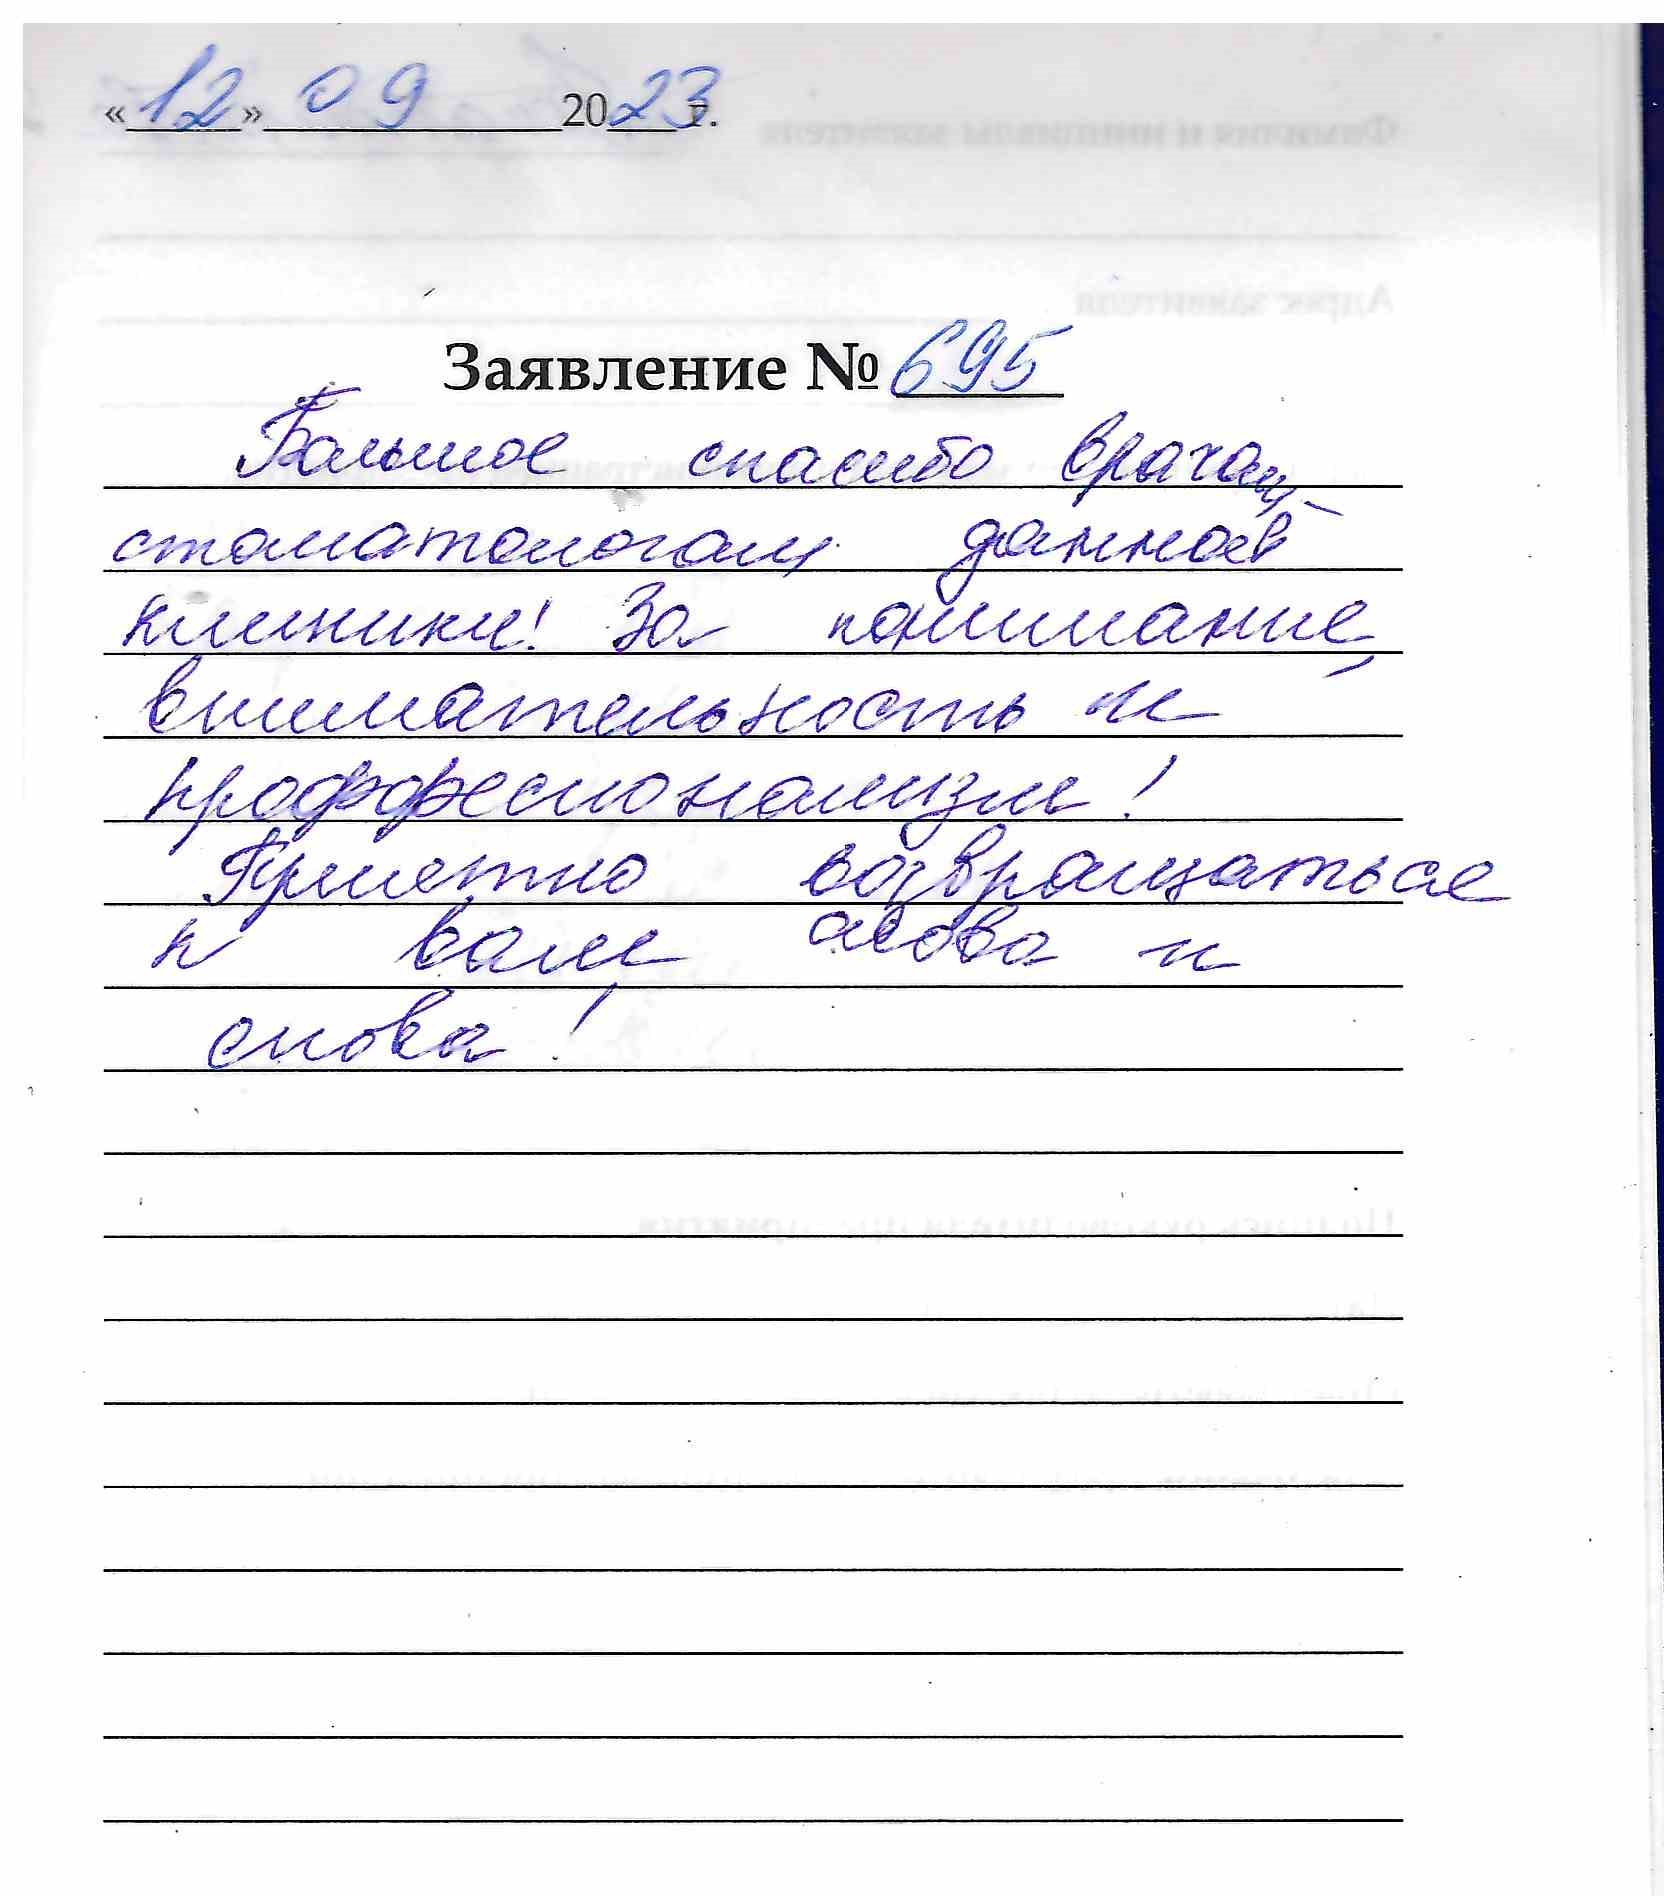 «12» 09 2023 г.
Заявление № 695
Большое спасибо врачам-
стоматологам данной
клиники! За понимание,
внимательность и
проффесионализм!
Приятно возвращаться
к вам снова и
снова!